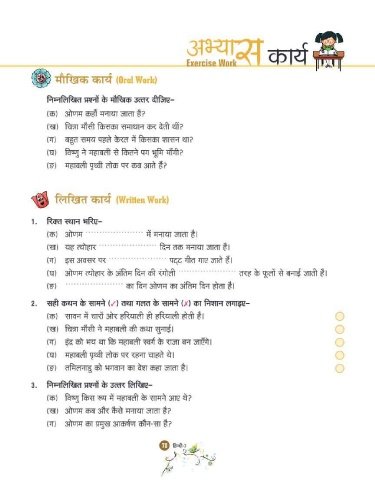 अभ्यास कार्य
Exercise Work
मौखिक कार्य (Oral Work)
निम्नलिखित प्रश्नों के मौखिक उत्तर दीजिए–
(क) ओणम कहाँ मनाया जाता है?
(ख) चित्रा मौसी किसका समाधान कर देती थीं?
(ग) बहुत समय पहले केरल में किसका शासन था?
(घ) विष्णु ने महाबली से कितने पग भूमि माँगी?
(ङ) महाबली पृथ्वी लोक पर कब आते हैं?
लिखित कार्य (Written Work)
1. रिक्त स्थान भरिए–
(क) ओणम ........................ में मनाया जाता है।
(ख) यह त्योहार ........................ दिन तक मनाया जाता है।
(ग) इस अवसर पर ........................ पट्ट गीत गाए जाते हैं।
(घ) ओणम त्योहार के अंतिम दिन की रंगोली ........................ तरह के फूलों से बनाई जाती है।
(ङ) ........................ का दिन ओणम का अंतिम दिन होता है।
2. सही कथन के सामने (✓) तथा गलत के सामने (✗) का निशान लगाइए–
(क) सावन में चारों ओर हरियाली ही हरियाली होती है।
(ख) चित्रा मौसी ने महाबली की कथा सुनाई।
(ग) इंद्र को भय था कि महाबली स्वर्ग के राजा बन जाएँगे।
(घ) महाबली पृथ्वी लोक पर रहना चाहते थे।
(ङ) तमिलनाडु को भगवान का देश कहा जाता है।
3. निम्नलिखित प्रश्नों के उत्तर लिखिए–
(क) विष्णु किस रूप में महाबली के सामने आए थे?
(ख) ओणम कब और कैसे मनाया जाता है?
(ग) ओणम का प्रमुख आकर्षण कौन-सा है?
हिन्दी-3